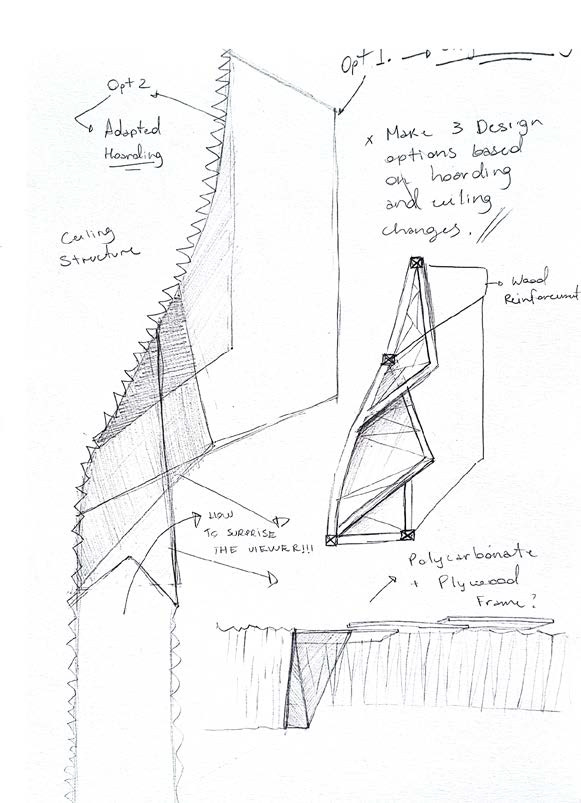 Opt 1. →
Opt 2
Adapted
Hoarding
x Make 3 Design
options based
on hoarding
and ceiling
changes. //
Ceiling
Structure
→ Wood
Reinforcement
HOW
TO SURPRISE
THE VIEWER!!!
Polycarbonate
+ Plywood
Frame?